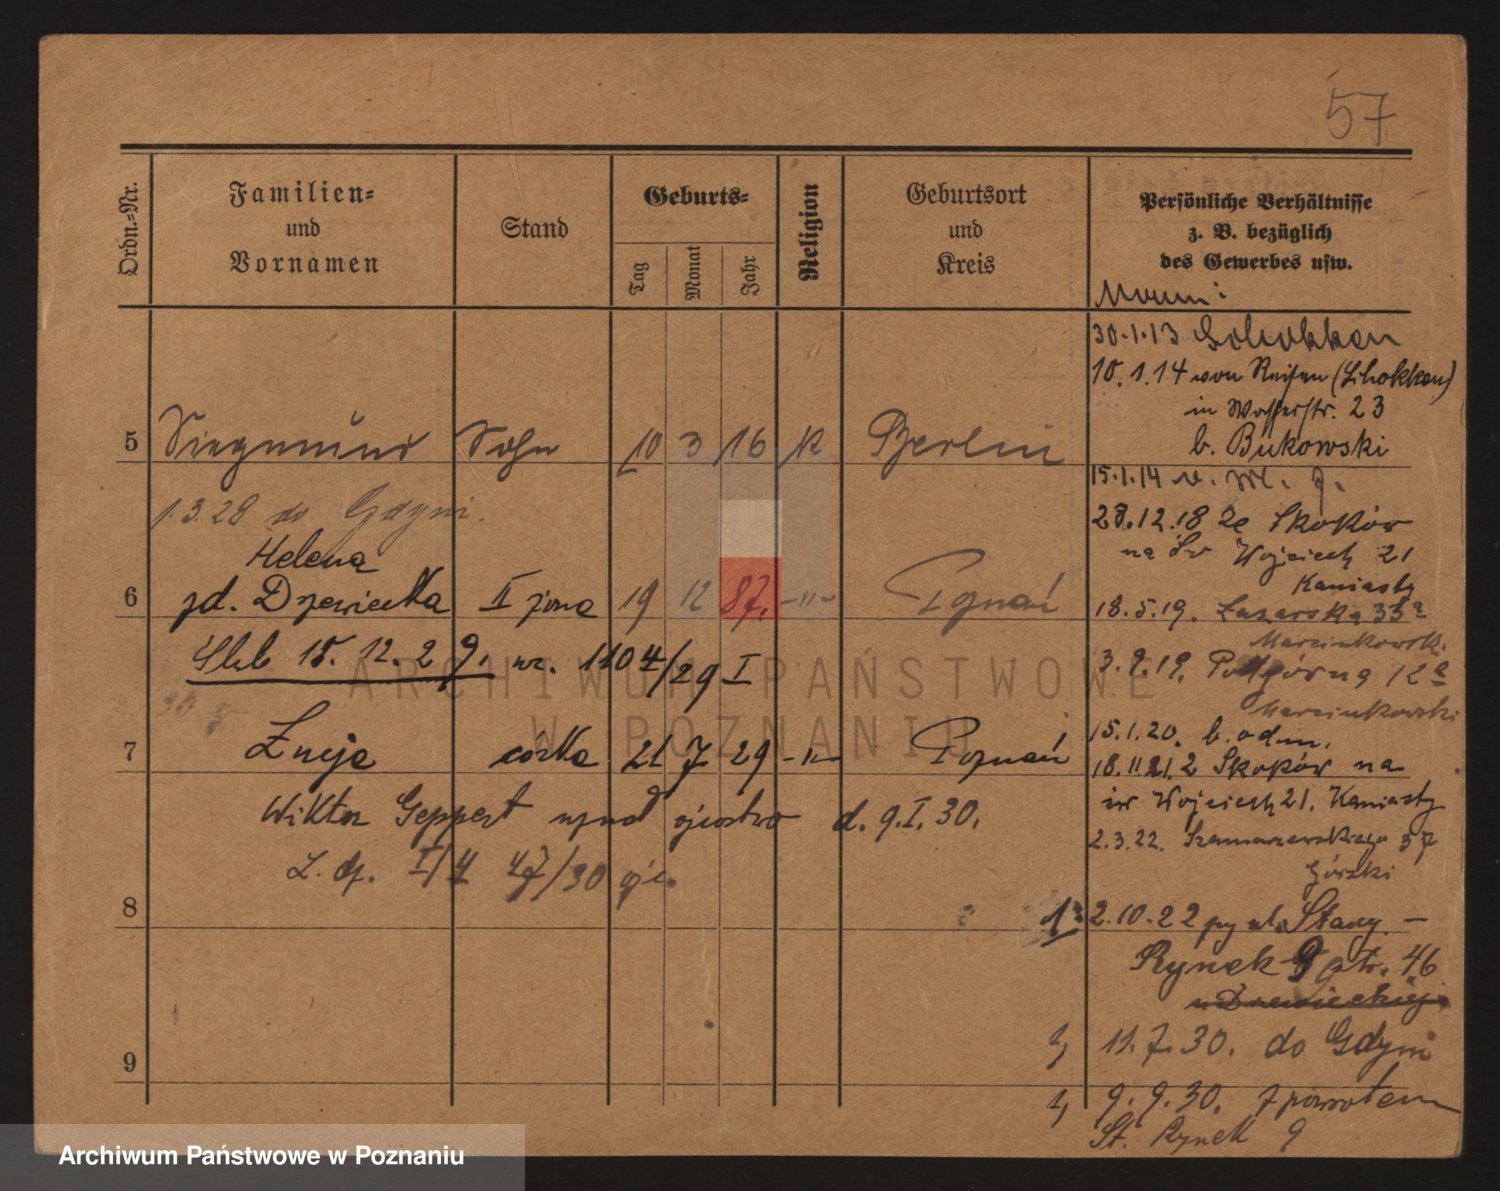 57
Ordn.=Nr.
Familien=
und
Vornamen
Stand
Geburts=
Tag
Monat
Jahr
Religion
Geburtsort
und
Kreis
Persönliche Verhältnisse
z. B. bezüglich
des Gewerbes usw.
30.1.13 Schokken
10.1.14 von Reisen (Schokken)
in Wasserstr. 23
b. Bukowski
5 Siegmund Sohn 10 3 16 K Berlin
15.1.14
1.3.28 do Gdyni.
28.12.18 Ze Skoków
na Św Wojciech 21
Kaniasty
Helena
6 zd. Drzewiecka II żona 19 12 87. -"- Poznań
18.5.19. Łazarska 33a
Marcinkowsk.
Ślub 15.12.29. nr. 1104/29 I
3.9.19. Podgórna 12a
Marcinkowski
15.1.20. b. odm.
7 Łucja córka 21 7 29 -"- Poznań
18.11.21. Z Skoków na
św Wojciech 21. Kaniasty
Wiktor Geppert uznał ojcostwo d. 9.I.30.
2.3.22. Szamarzewskiego 37
Górski
L. dz. I/4 47/30
8
2.10.22 ul. Stary -
Rynek 9 ptr. 46
u Drzewieckiej
9
11.7.30. do Gdyni
9.9.30. z powrotem
St. Rynek 9
ARCHIWUM PAŃSTWOWE
W POZNANIU
Archiwum Państwowe w Poznaniu